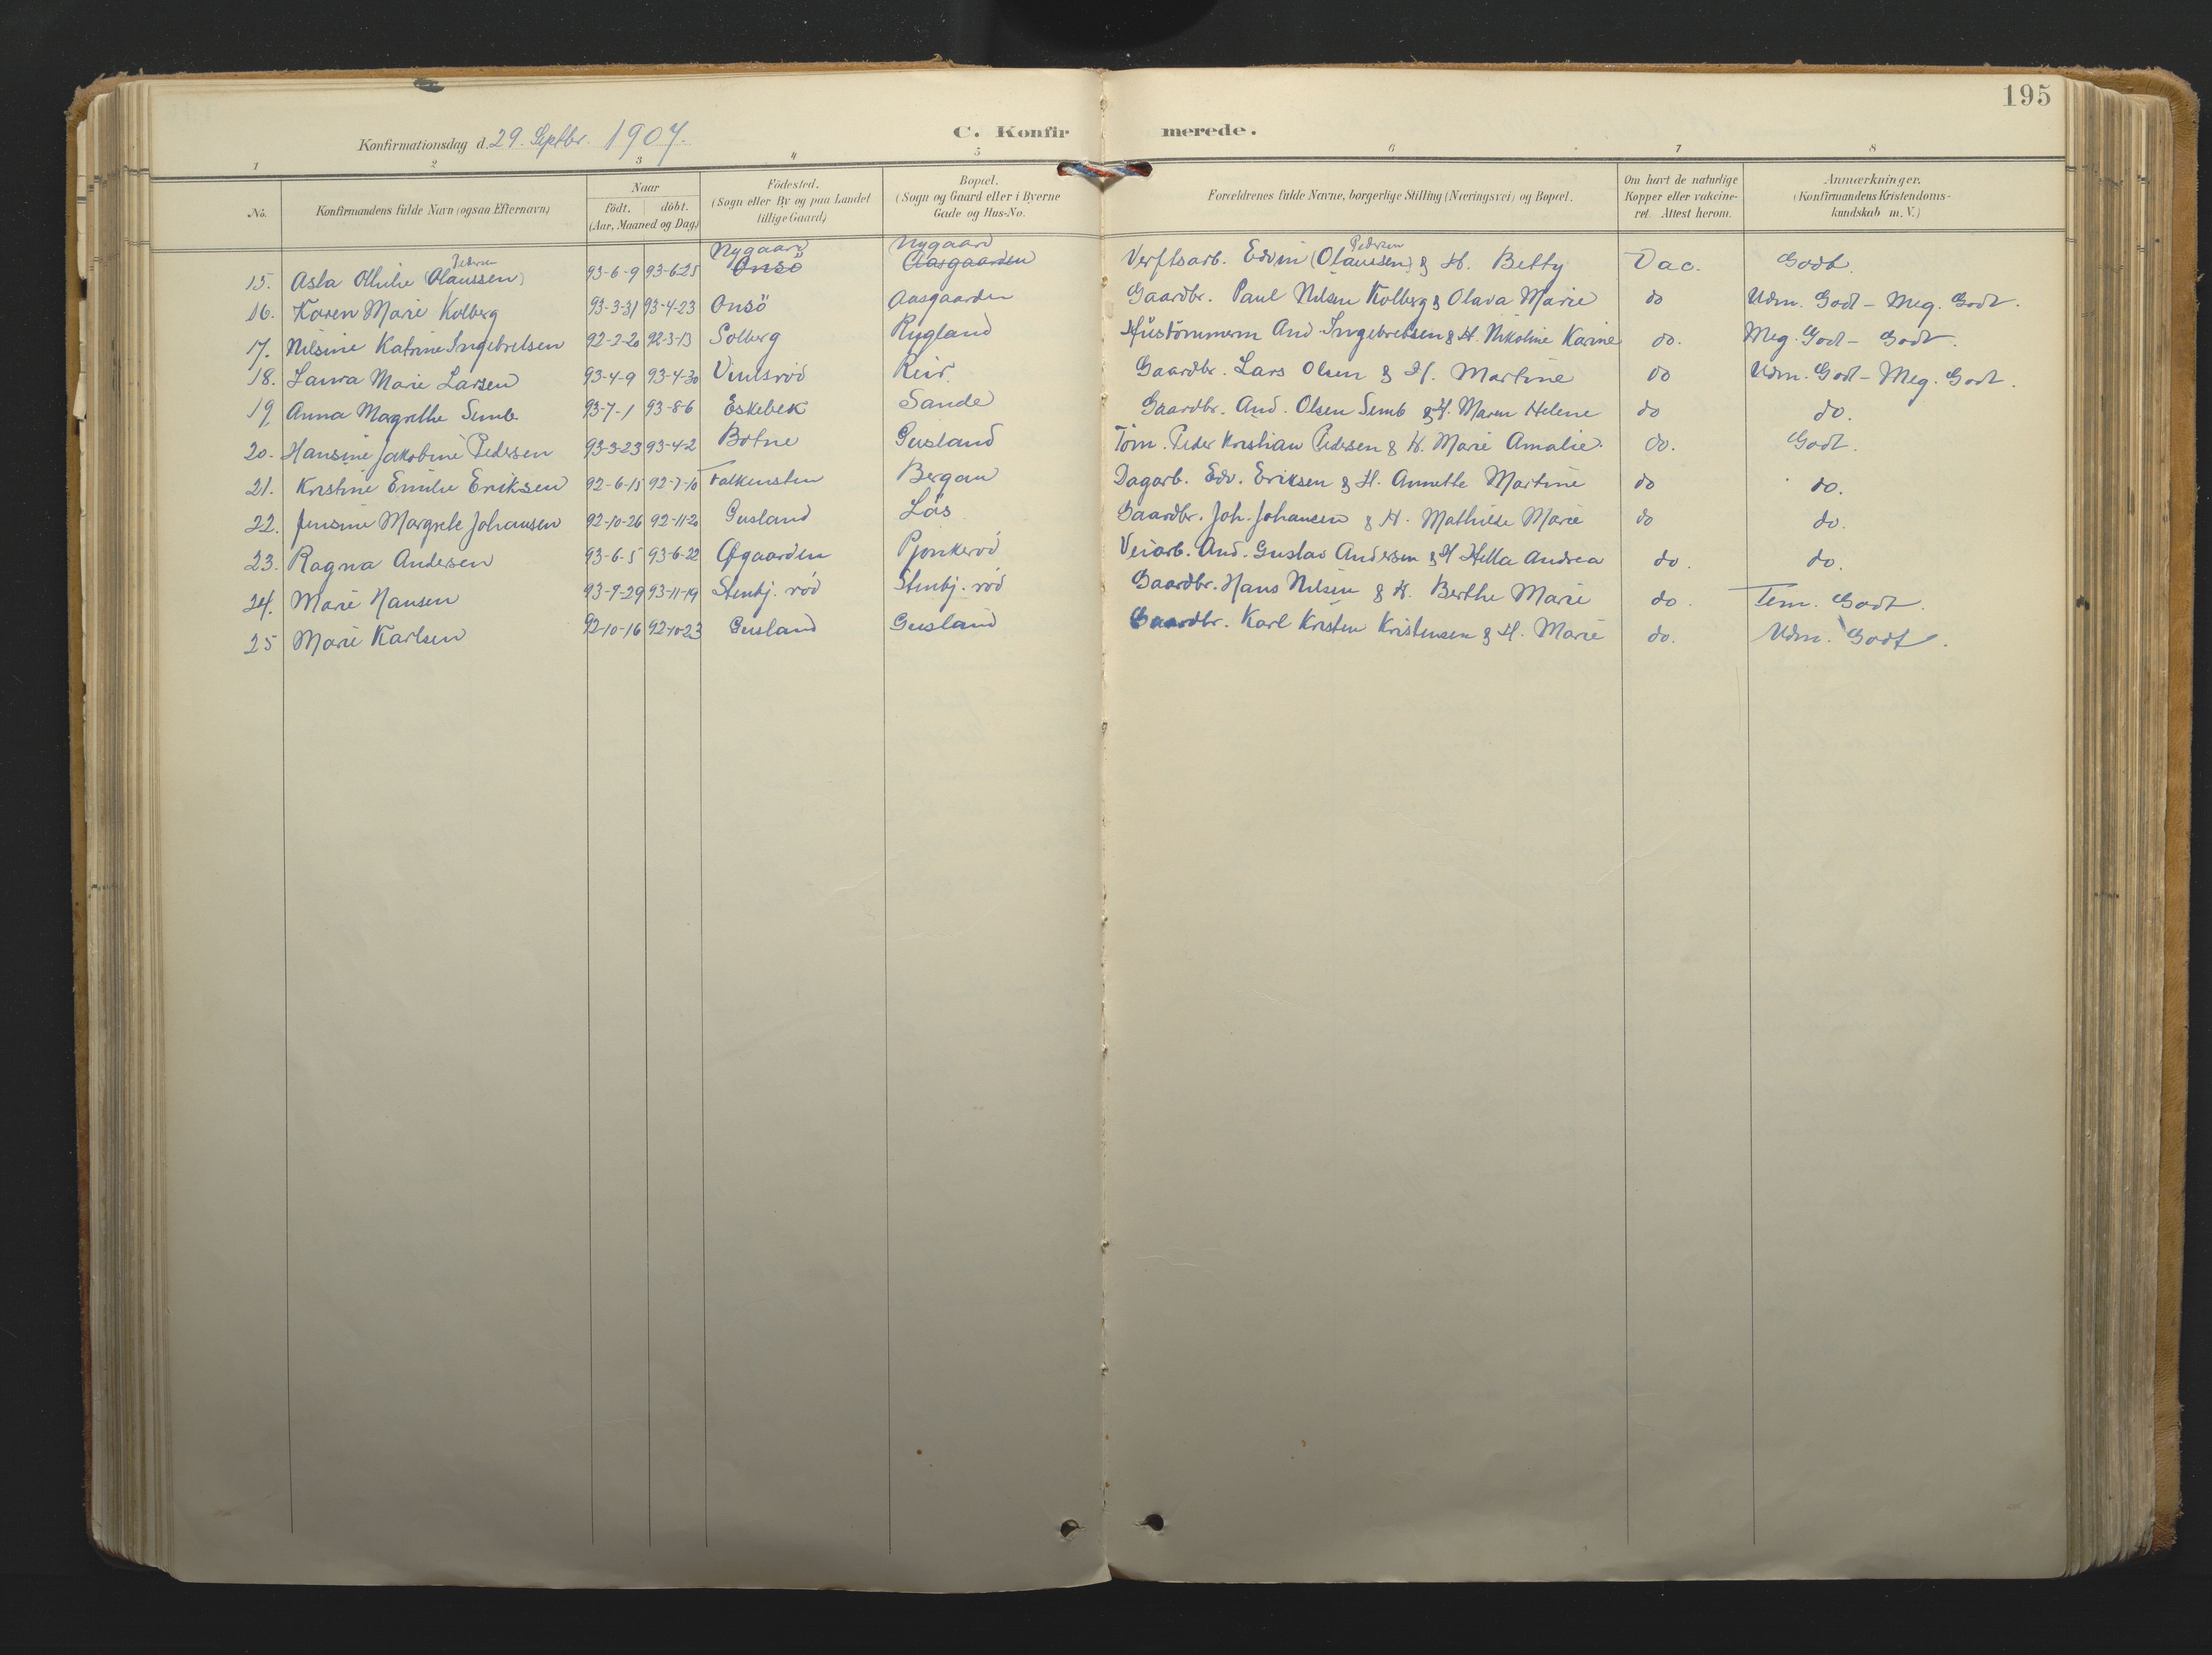 195
Konfirmationsdag d. 29. Septbr. 1907.
C. Konfirmerede.
1 2 3 4 5 6 7 8
No. Konfirmandens fulde Navn (ogsaa Efternavn) Naar födt. döbt. (Aar, Maaned og Dag) Födested. (Sogn eller By og paa Landet tillige Gaard) Bopæl. (Sogn og Gaard eller i Byerne Gade og Hus-No. Forældrenes fulde Navne, borgerlige Stilling (Næringsvei) og Bopæl. Om havt de naturlige Kopper eller vakcineret. Attest herom. Anmærkninger. (Konfirmandens Kristendomskundskab m. V.)
Pedersen Nygaard Nygaard Pedersen
15. Asla Othilie (Olaussen) 93-6-9 93-6-25 Onsö Aasgaarden Verftsarb. Edvin (Olaussen) & H. Betty Vac. Godt.
16. Karen Marie Kolberg 93-3-31 93-4-23 Onsö Aasgaarden Gaardbr. Paul Nilsen Kolberg & Olava Marie do Udm. Godt - Meg. Godt.
17. Nilsine Katrine Ingebretsen 92-2-20 92-3-13 Solberg Rygland Hüstömmerm And. Ingebretsen & H. Nikoline Karine do. Meg. Godt - Godt.
18. Laura Marie Larsen 93-4-9 93-4-30 Vinlsröd Reir Gaardbr. Lars Olsen & H. Martine do Udm. Godt - Meg. Godt.
19. Anna Magrethe Semb 93-7-1 93-8-6 Eskebek Sande Gaardbr. And. Olsen Semb & H. Maren Helene do do.
20. Hansine Jakobine Pedersen 93-3-23 93-4-2 Botne Gusland Töm. Peder Kristian Pedersen & H. Marie Amalie do. Godt.
21. Kristine Emilie Eriksen 92-6-15 92-7-10 Falkensten Bergan Dagarb. Edv. Eriksen & H. Annette Martine do do.
22. Jensine Margrete Johansen 92-10-26 92-11-20 Gusland Lös Gaardbr. Joh. Johansen & H. Mathilde Marie do do.
23. Ragna Andersen 93-6-5 93-6-22 Øgaarden Pjonkeröd Veiarb. And. Gustav Andersen & H Hella Andrea do. do.
24. Marie Hansen 93-9-29 93-11-19 Stenbj. röd Stenbj. röd Gaardbr. Hans Nilsen & H. Berthe Marie do. Tem. Godt.
25 Marie Karlsen 92-10-16 92-10-23 Gusland Gusland Gaardbr. Karl Kristen Kristensen & H. Marie do. Udm. Godt.